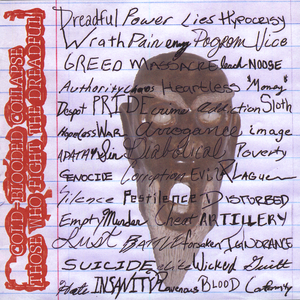 COLD-BLOODED COLLAPSE
THOSE WHO FIGHT THE DREADFUL
Dreadful Power Lies Hypocrisy
Wrath Pain envy Pogrom Vice
GREED MASSACRE NOOSE
Authority Chaos Heartless "Money"
Despot PRIDE Addiction Sloth
Hopeless WAR Arrogance image
APATHY Sin Diabolical Poverty
GENOCIDE Corruption Evil Plague
Silence Pestilence DISTURBED
Empty Murder Cheat ARTILLERY
Lust forsaken IGNORANCE
SUICIDE Wicked Guilt
Hate INSANITY Ravenous BLOOD